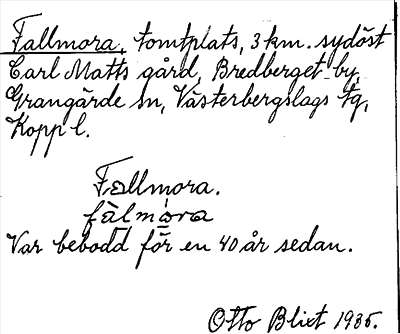 Fallmora, tomtplats, 3 km. sydöst
Carl Matts gård, Bredberget by,
Grangärde sn, Västerbergslags tg,
Kopp l.
Fallmora.
fàlmóra
Var bebodd för en 40 år sedan.
Otto Blixt 1935.